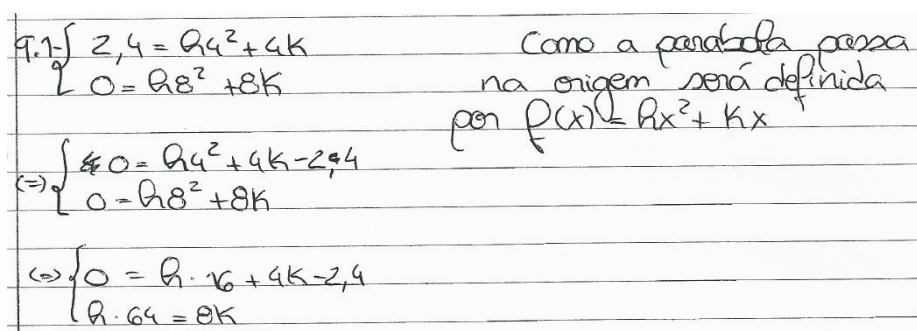 9.1- { 2,4 = h4² + 4K
0 = h8² + 8K
Como a parabola passa
na origem será definida
por f(x) = hx² + Kx
(=) { 0 = h4² + 4K - 2,4
0 = h8² + 8K
(=) { 0 = h · 16 + 4K - 2,4
h · 64 = 8K